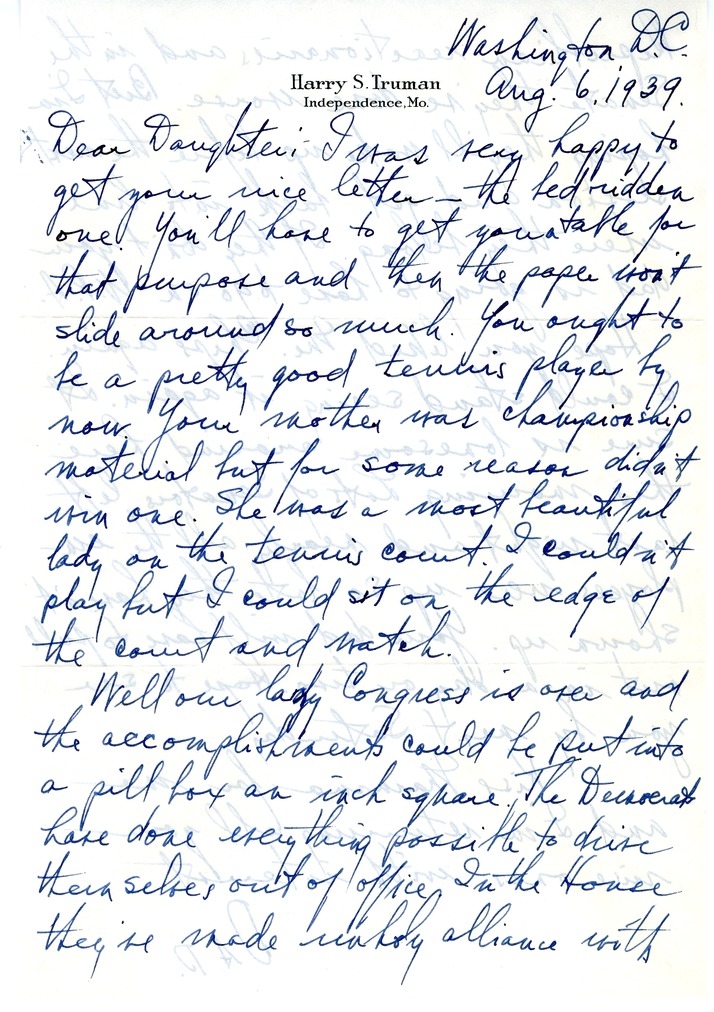 Washington, D.C.
Harry S. Truman
Independence, Mo.
Aug. 6, 1939.
Dear Daughter:- I was very happy to
get your nice letter - the bed ridden
one. You'll have to get you a table for
that purpose and then the paper won't
slide around so much. You ought to
be a pretty good tennis player by
now. Your mother was championship
material but for some reason didn't
win one. She was a most beautiful
lady on the tennis court. I couldn't
play but I could sit on the edge of
the court and watch.
Well our lady Congress is over and
the accomplishments could be put into
a pill box an inch square. The Democrats
have done everything possible to drive
themselves out of office. In the House
they've made unholy alliance with